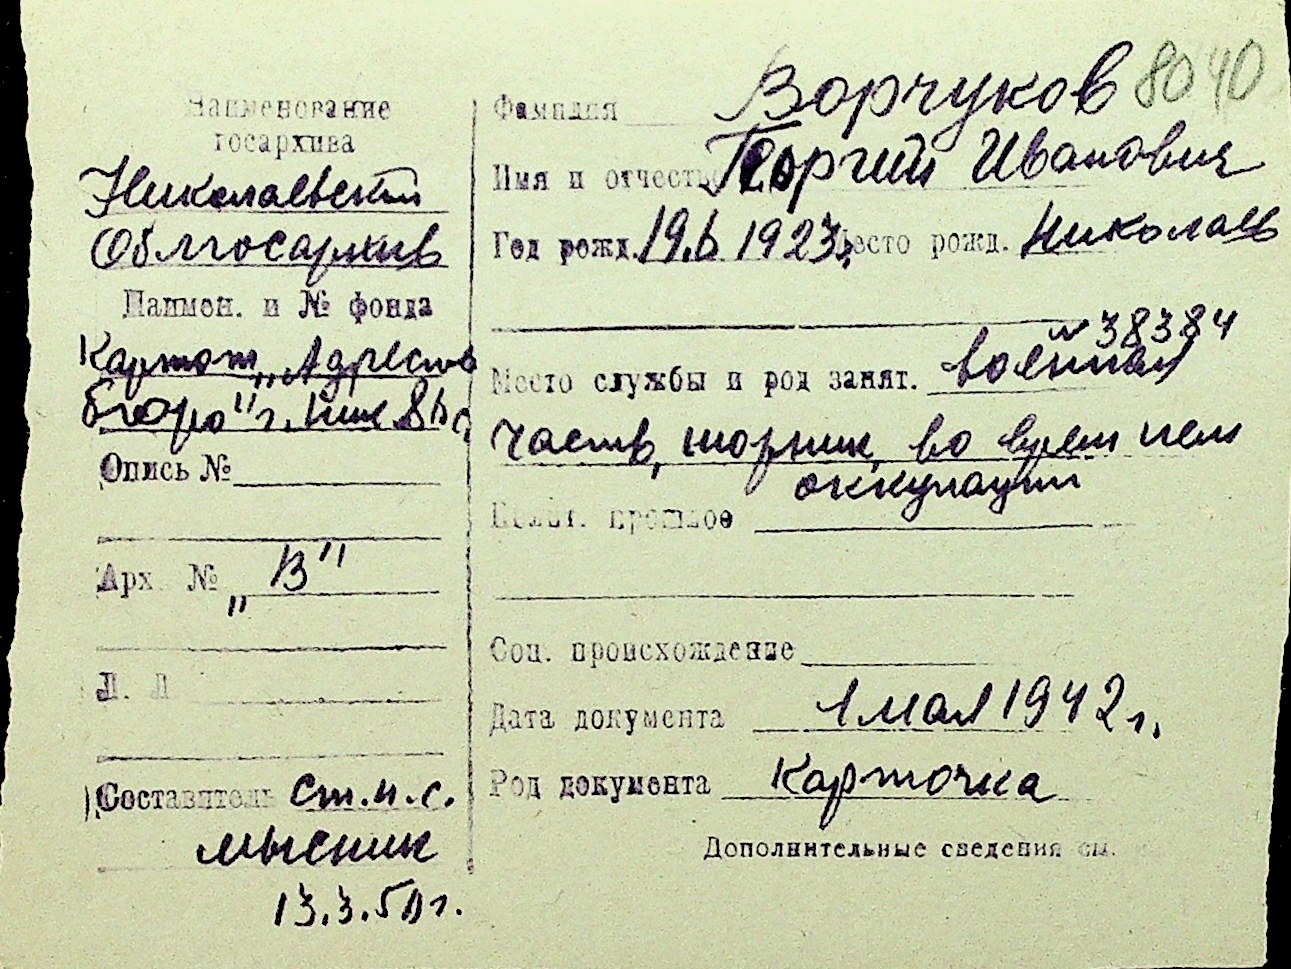 Наименование
госархива
Николаевский
Облгосархив
Наимен. и № фонда
Картот. „Адресно
бюро" г. Ник
Опись №
Арх. № „В"
Л. Л
Составитель ст. н. с.
Мысник
13.3.50 г.
8040
Фамилия Ворчуков
Имя и отчество Георгий Иванович
Год рожд. 19.6 1923 Место рожд. Николаев
№ 38384
Место службы и род занят. военная
часть, шорник, во время нем
оккупации
Полит. прошлое
Соц. происхождение
Дата документа 1 мая 1942 г.
Род документа Карточка
Дополнительные сведения см.